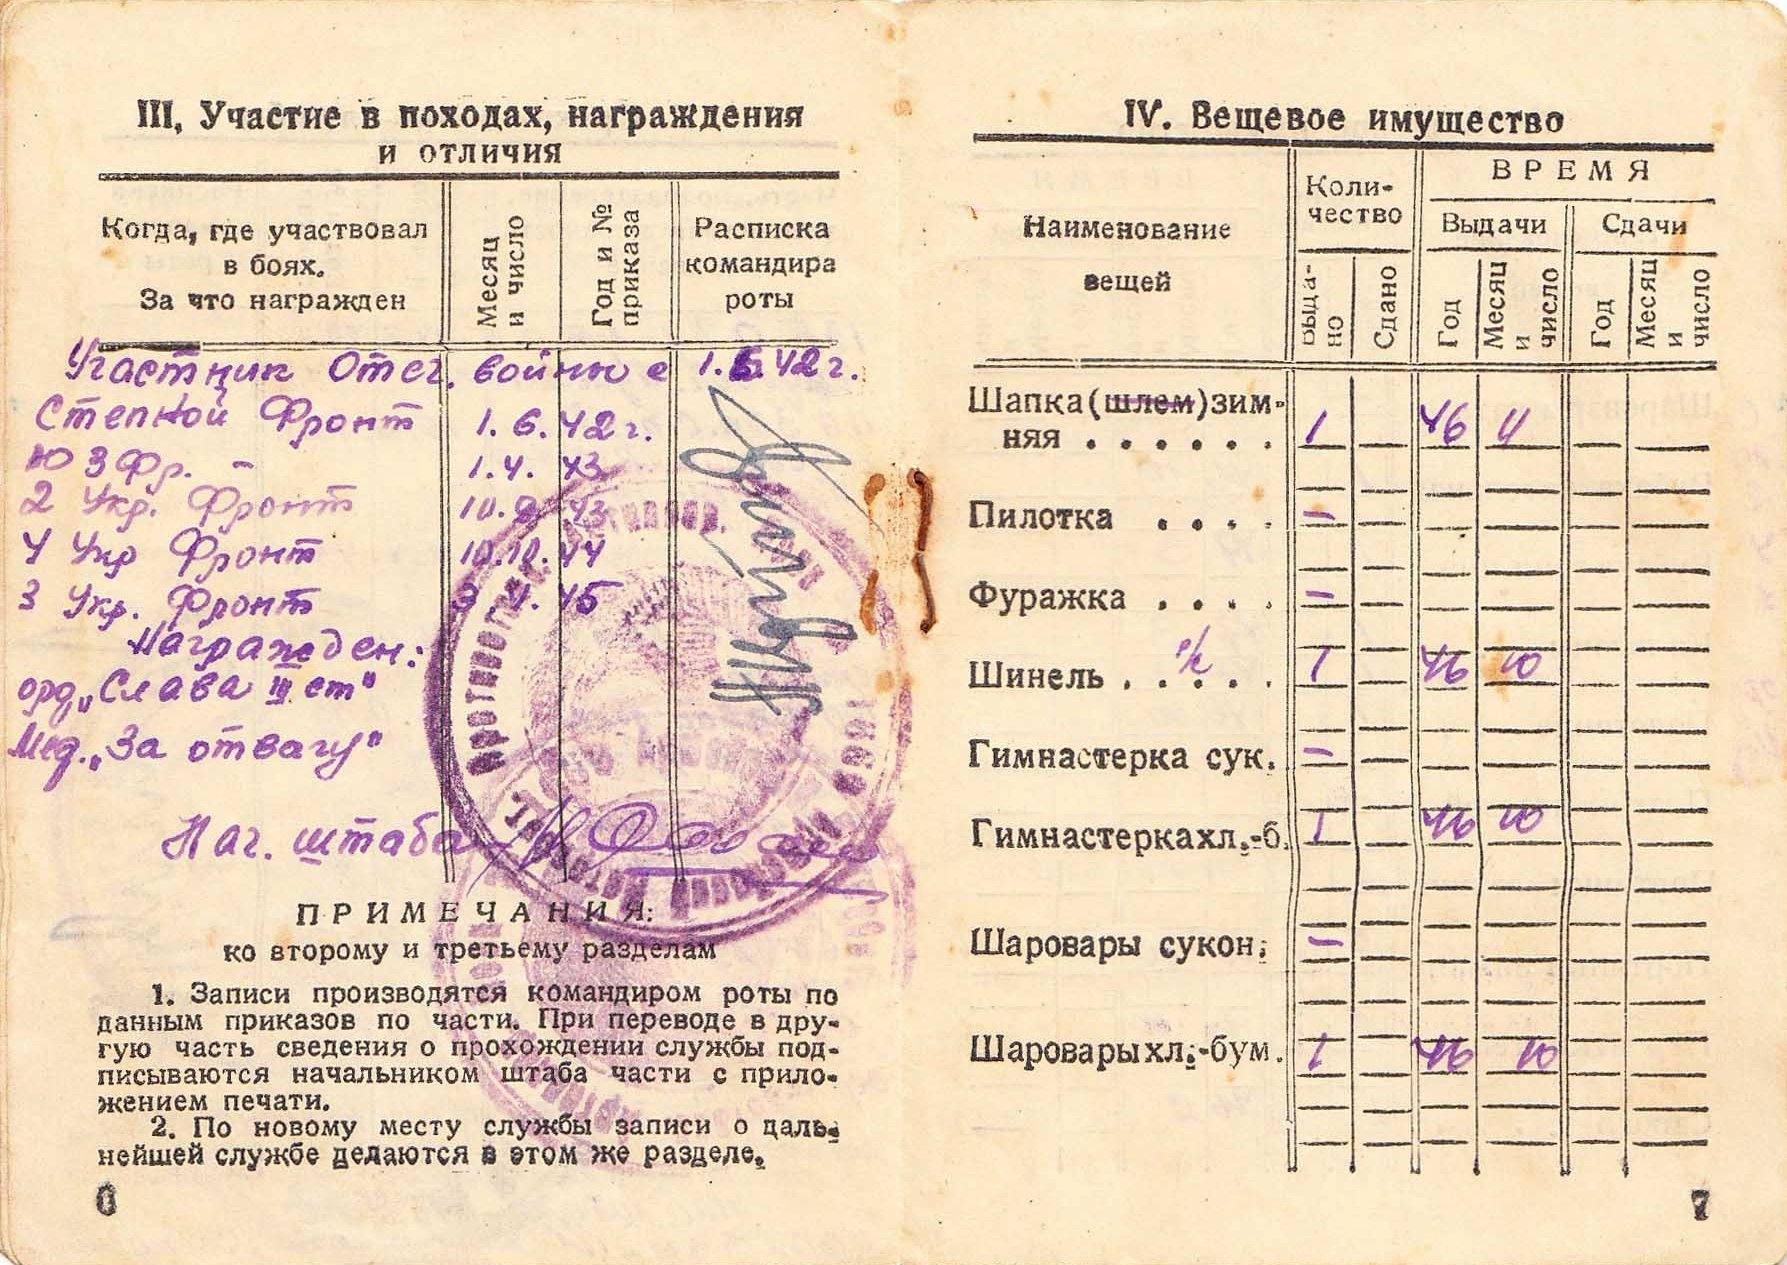 III. Участие в походах, награждения
и отличия
Когда, где участвовал
в боях.
За что награжден
Месяц
и число
Год и №
приказа
Расписка
командира
роты
Участник Отеч. войны с 1.6.42 г.
Степной Фронт 1.6.42 г.
Ю З Фр. - 1.4.43
2 Укр. Фронт 10.9.43
4 Укр Фронт 10.10.44
3 Укр. Фронт 3 4.45
Награжден:
орд. „Слава III ст"
Мед. „За отвагу"
Нач. штаба
ПРИМЕЧАНИЯ:
ко второму и третьему разделам
1. Записи производятся командиром роты по
данным приказов по части. При переводе в дру-
гую часть сведения о прохождении службы под-
писываются начальником штаба части с прило-
жением печати.
2. По новому месту службы записи о даль-
нейшей службе делаются в этом же разделе.
6
IV. Вещевое имущество
Наименование
вещей
Коли-
чество
ВРЕМЯ
Выдачи
Сдачи
Выда-
но
Сдано
Год
Месяц
и
число
Год
Месяц
и
число
Шапка (шлем) зим-
няя . . . . . . 1 46 11
Пилотка . . . . -
Фуражка . . . . -
Шинель . . . . . 1 46 10
Гимнастерка сук. -
Гимнастерка хл.-б. 1 46 10
Шаровары сукон. -
Шаровары хл.-бум. 1 46 10
7